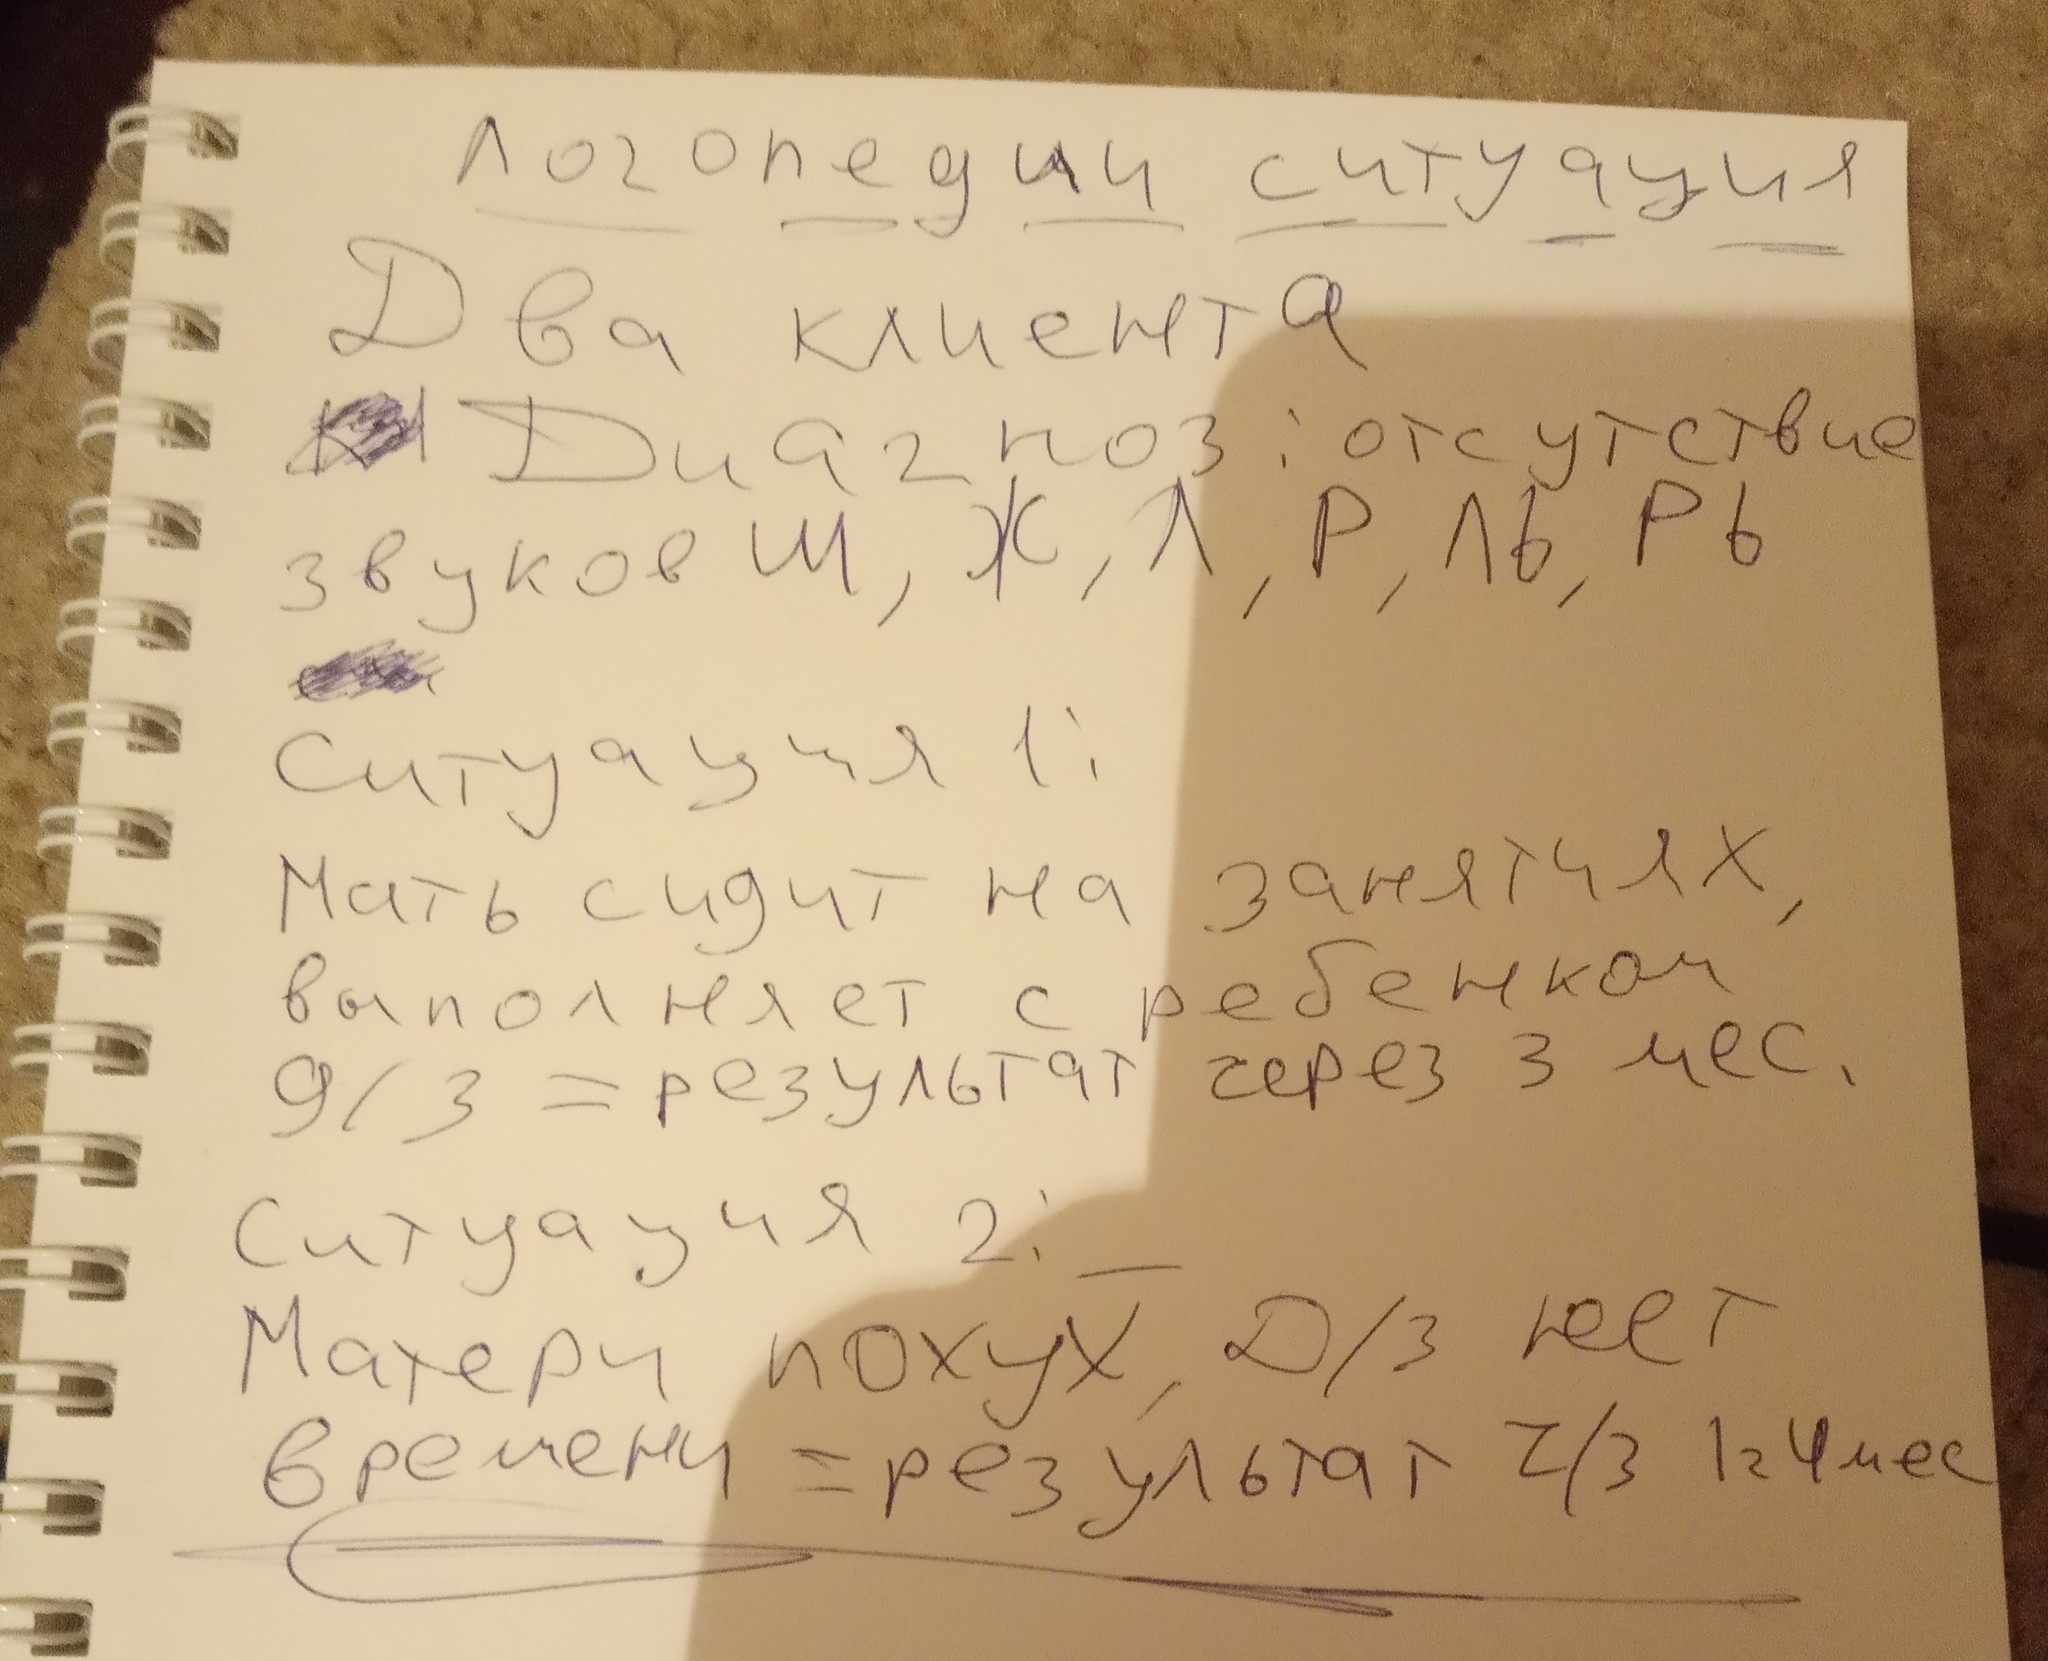 Логопедии ситуация
Два клиента
Диагноз: отсутствие
звуков Ш, Ж, Л, Р, ЛЬ, РЬ
Ситуация 1:
Мать сидит на занятиях,
выполняет с ребенком
д/з = результат через 3 мес.
Ситуация 2: _
Матери похух, Д/з нет
времени = результат ч/з 1г 4 мес